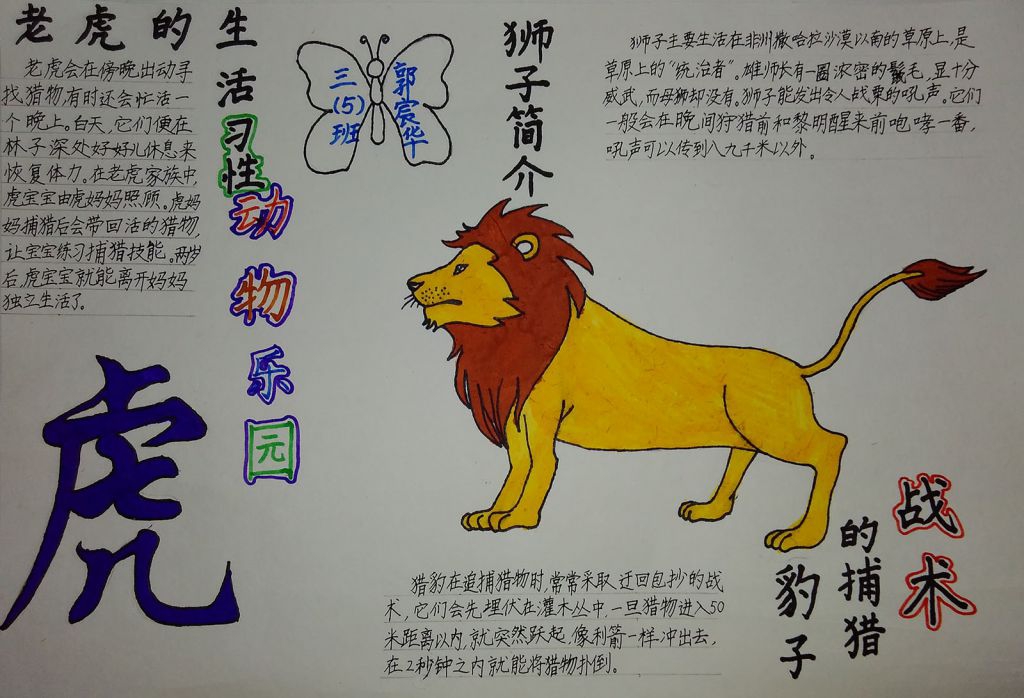 老虎的生
活
习
性
老虎会在傍晚出动寻
找猎物,有时还会忙活一
个晚上。白天,它们便在
林子深处好好儿休息来
恢复体力。在老虎家族中,
虎宝宝由虎妈妈照顾。虎妈
妈捕猎后会带回活的猎物,
让宝宝练习捕猎技能。两岁
后,虎宝宝就能离开妈妈
独立生活了。
虎
动
物
乐
园
三
(5)
班
郭
宸
华
狮
子
简
介
狮子主要生活在非州撒哈拉沙漠以南的草原上,是
草原上的“统治者”。雄师长有一圈浓密的鬣毛,显十分
威武,而母狮却没有。狮子能发出令人战栗的吼声。它们
一般会在晚间狩猎前和黎明醒来前咆哮一番,
吼声可以传到八九千米以外。
豹
子
的
捕
猎
战
术
猎豹在追捕猎物时,常常采取迂回包抄的战
术,它们会先埋伏在灌木丛中,一旦猎物进入50
米距离以内,就突然跃起,像利箭一样冲出去,
在2秒钟之内就能将猎物扑倒。